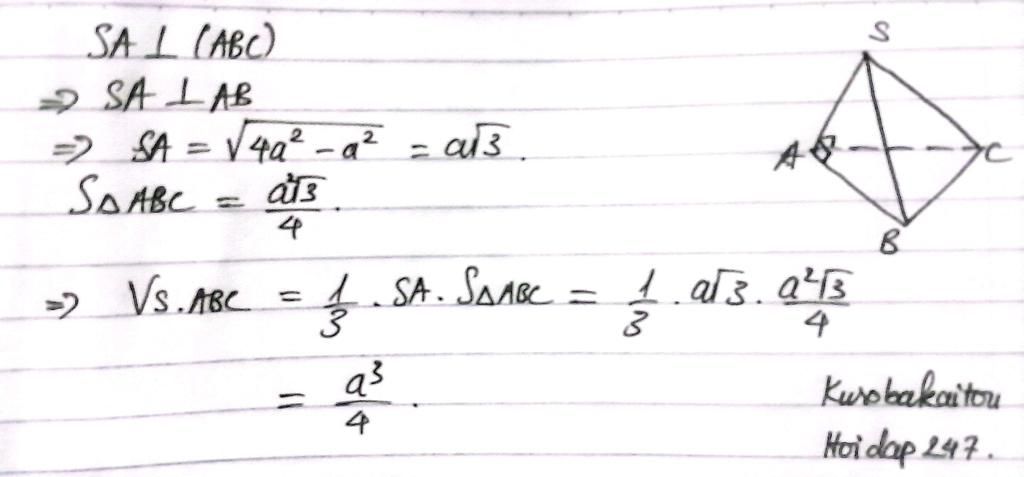 SA ⊥ (ABC)
⇒ SA ⊥ AB
⇒ SA = √(4a² - a²) = a√3.
S△ABC = a²√3/4.
⇒ VS.ABC = 1/3 . SA. S△ABC = 1/3 . a√3 . a²√3/4
= a³/4.
S
A
C
B
Kurobakaitou
Hoidap247.